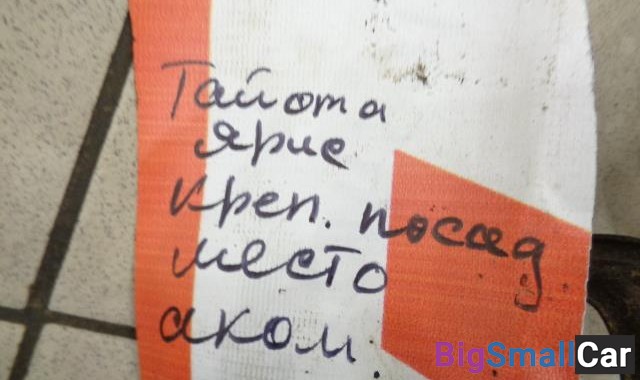 Тайота
Ярис
Креп. посад
место
аком
BigSmallCar